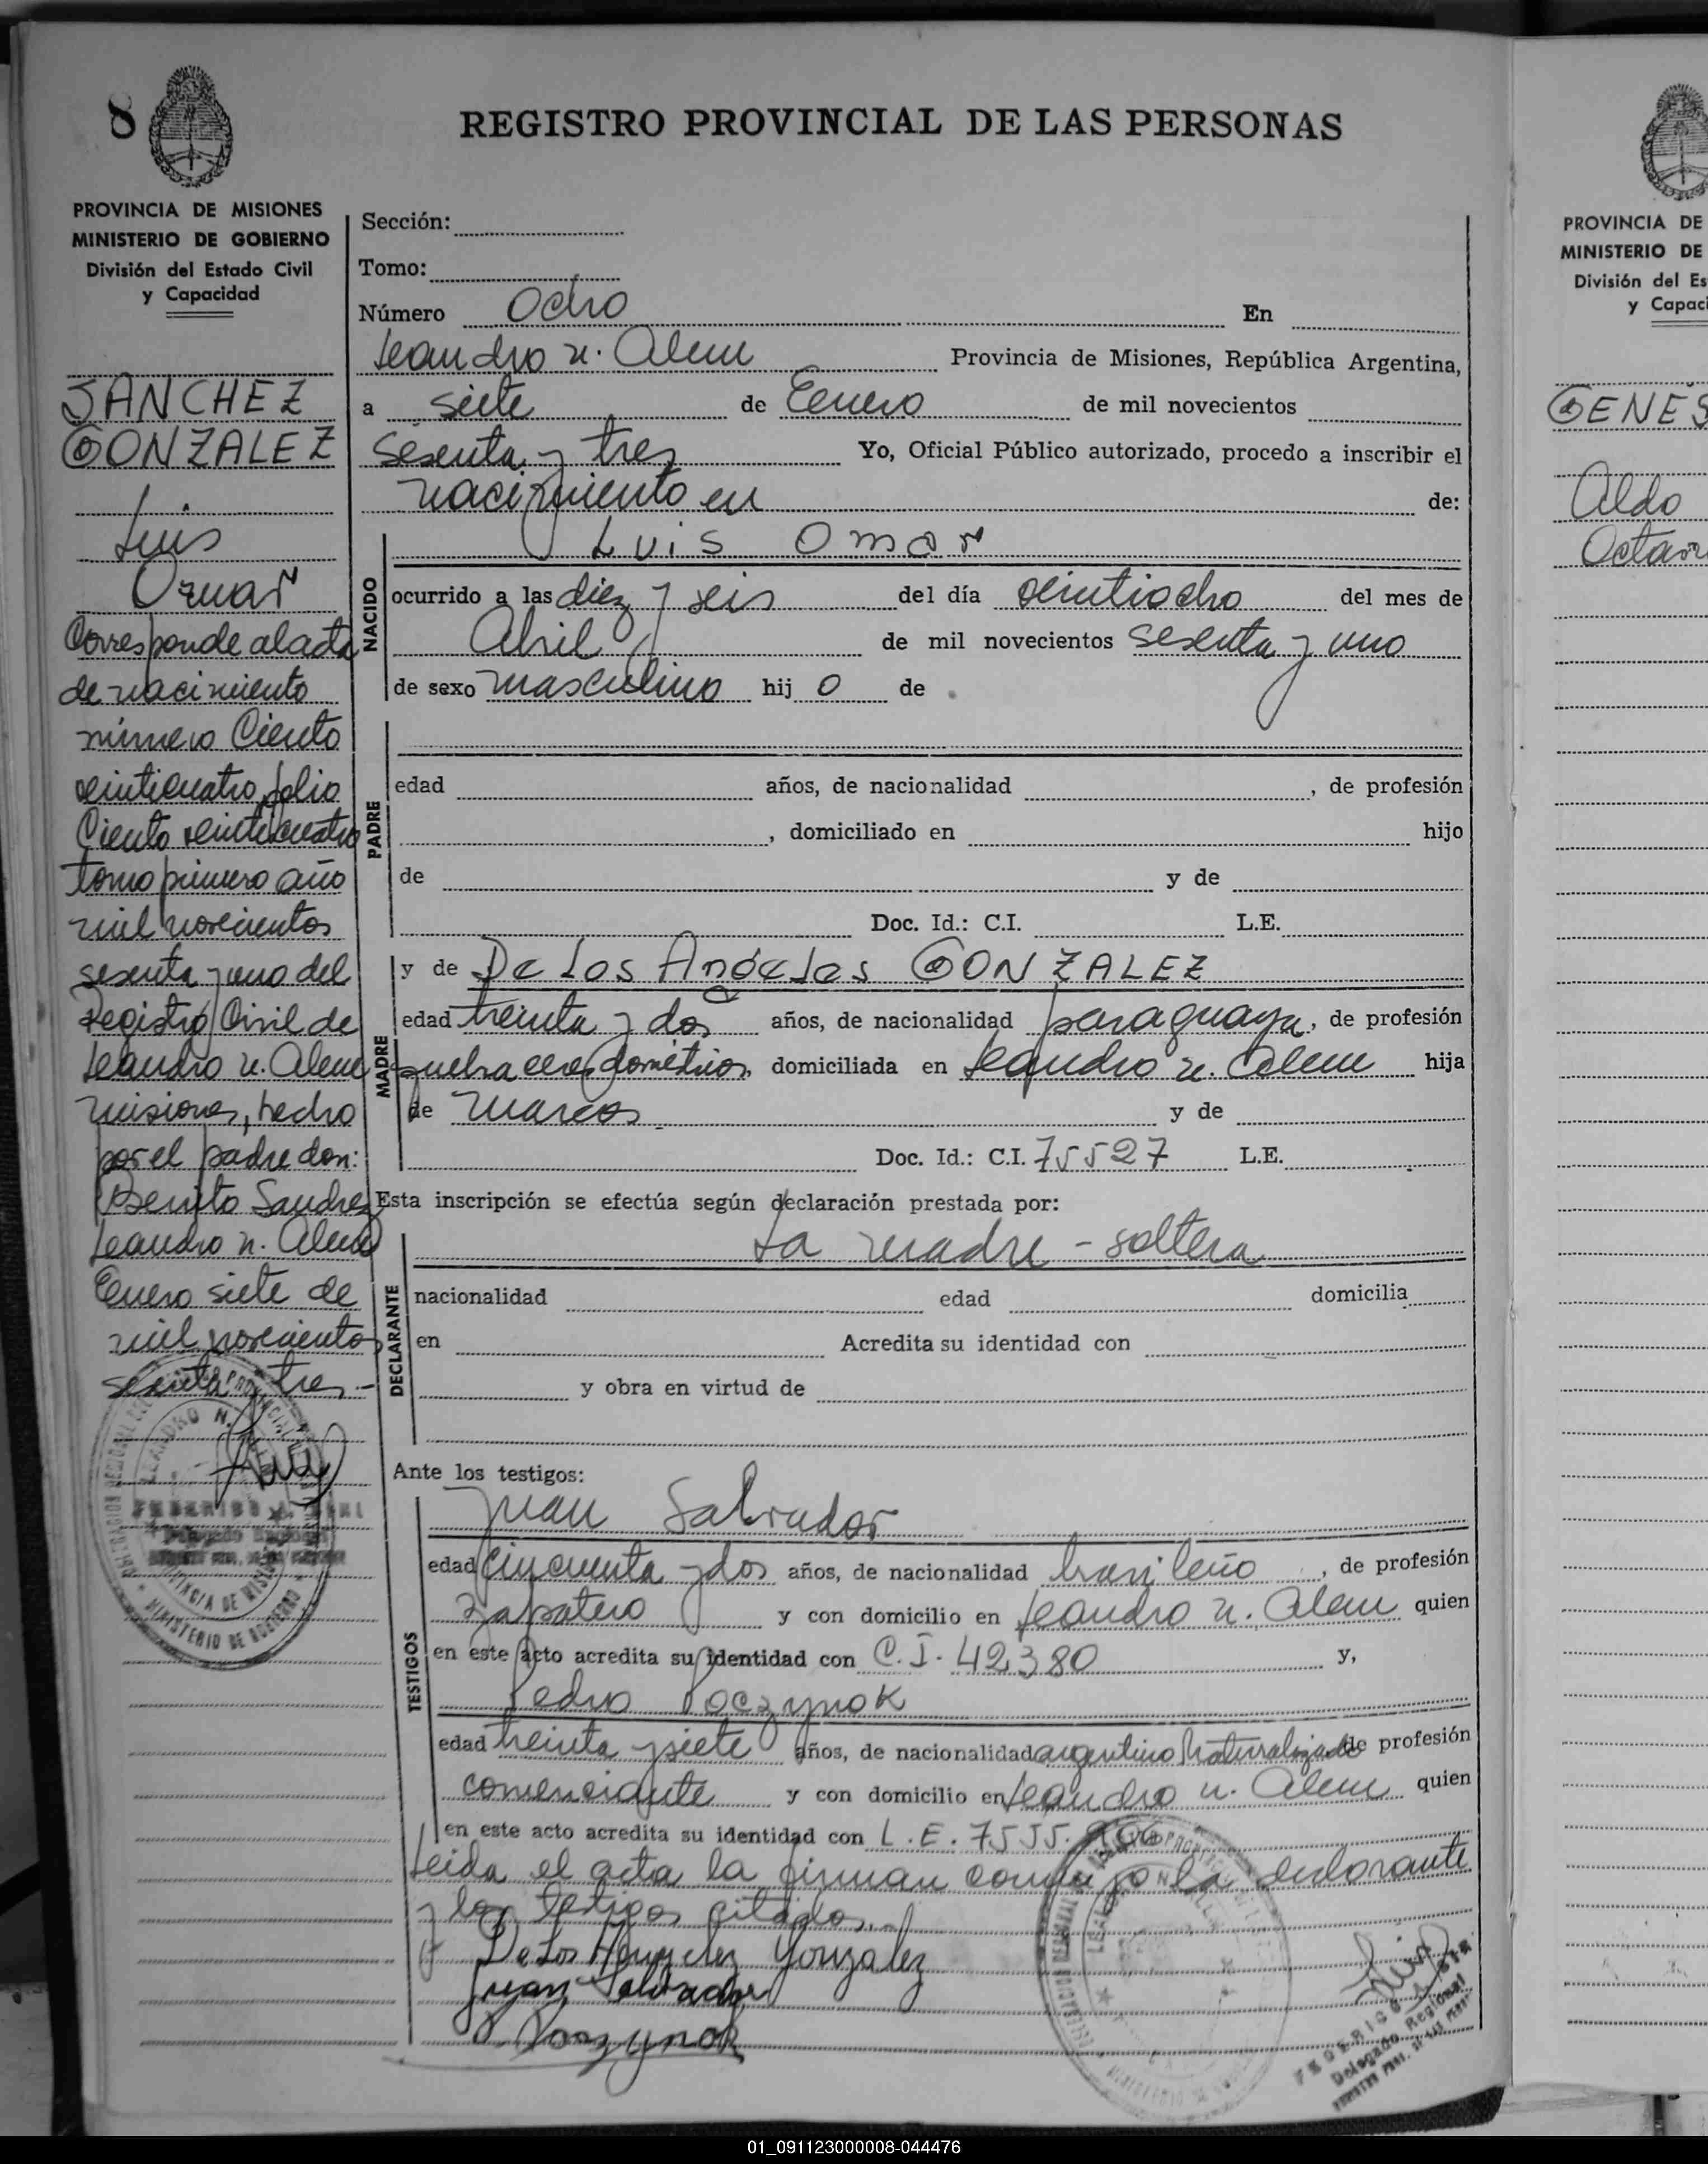 8
REGISTRO PROVINCIAL DE LAS PERSONAS
PROVINCIA DE MISIONES
MINISTERIO DE GOBIERNO
División del Estado Civil
y Capacidad
SANCHEZ
GONZALEZ
Luis
Omar
Corresponde al acta
de nacimiento
número Ciento
veinticuatro, folio
Ciento veinticuatro
tomo primero año
mil novecientos
sesenta y uno del
Registro Civil de
Leandro N. Alem
Misiones, hecho
por el padre don:
Benito Sanchez
Leandro N. Alem
Enero siete de
mil novecientos
sesenta y tres.-
Sección:
Tomo:
Número Ocho En
Leandro N. Alem Provincia de Misiones, República Argentina,
a siete de Enero de mil novecientos
sesenta y tres Yo, Oficial Público autorizado, procedo a inscribir el
nacimiento en de:
NACIDO
Luis Omar
ocurrido a las diez y seis del día veintiocho del mes de
Abril de mil novecientos sesenta y uno
de sexo masculino hij o de
PADRE
edad años, de nacionalidad , de profesión
, domiciliado en hijo
de y de
Doc. Id.: C.I. L.E.
MADRE
y de De Los Angeles GONZALEZ
edad treinta y dos años, de nacionalidad paraguaya, de profesión
domiciliada en Leandro N. Alem hija
de Marcos y de
Doc. Id.: C.I. 75527 L.E.
Esta inscripción se efectúa según declaración prestada por:
DECLARANTE
La madre - soltera
nacionalidad edad domicilia
en Acredita su identidad con
y obra en virtud de
Ante los testigos:
TESTIGOS
Juan Salvador
edad Cincuenta y dos años, de nacionalidad brasileño, de profesión
zapatero y con domicilio en Leandro N. Alem quien
en este acto acredita su identidad con C.I. 42380 y,
Pedro Poczynok
edad treinta y siete años, de nacionalidad argentino Naturalizado de profesión
comerciante y con domicilio en Leandro N. Alem quien
en este acto acredita su identidad con L.E. 7555.
Leida el acta la firman conmigo la declarante
y los testigos citados.-
De Los Angeles Gonzalez
Juan Salvador
P. Poczynok
FEDERICO
Delegado Regional
PROVINCIA DE
MINISTERIO DE
División del Es
y Capac
GENES
Aldo
Octavi
01_091123000008-044476